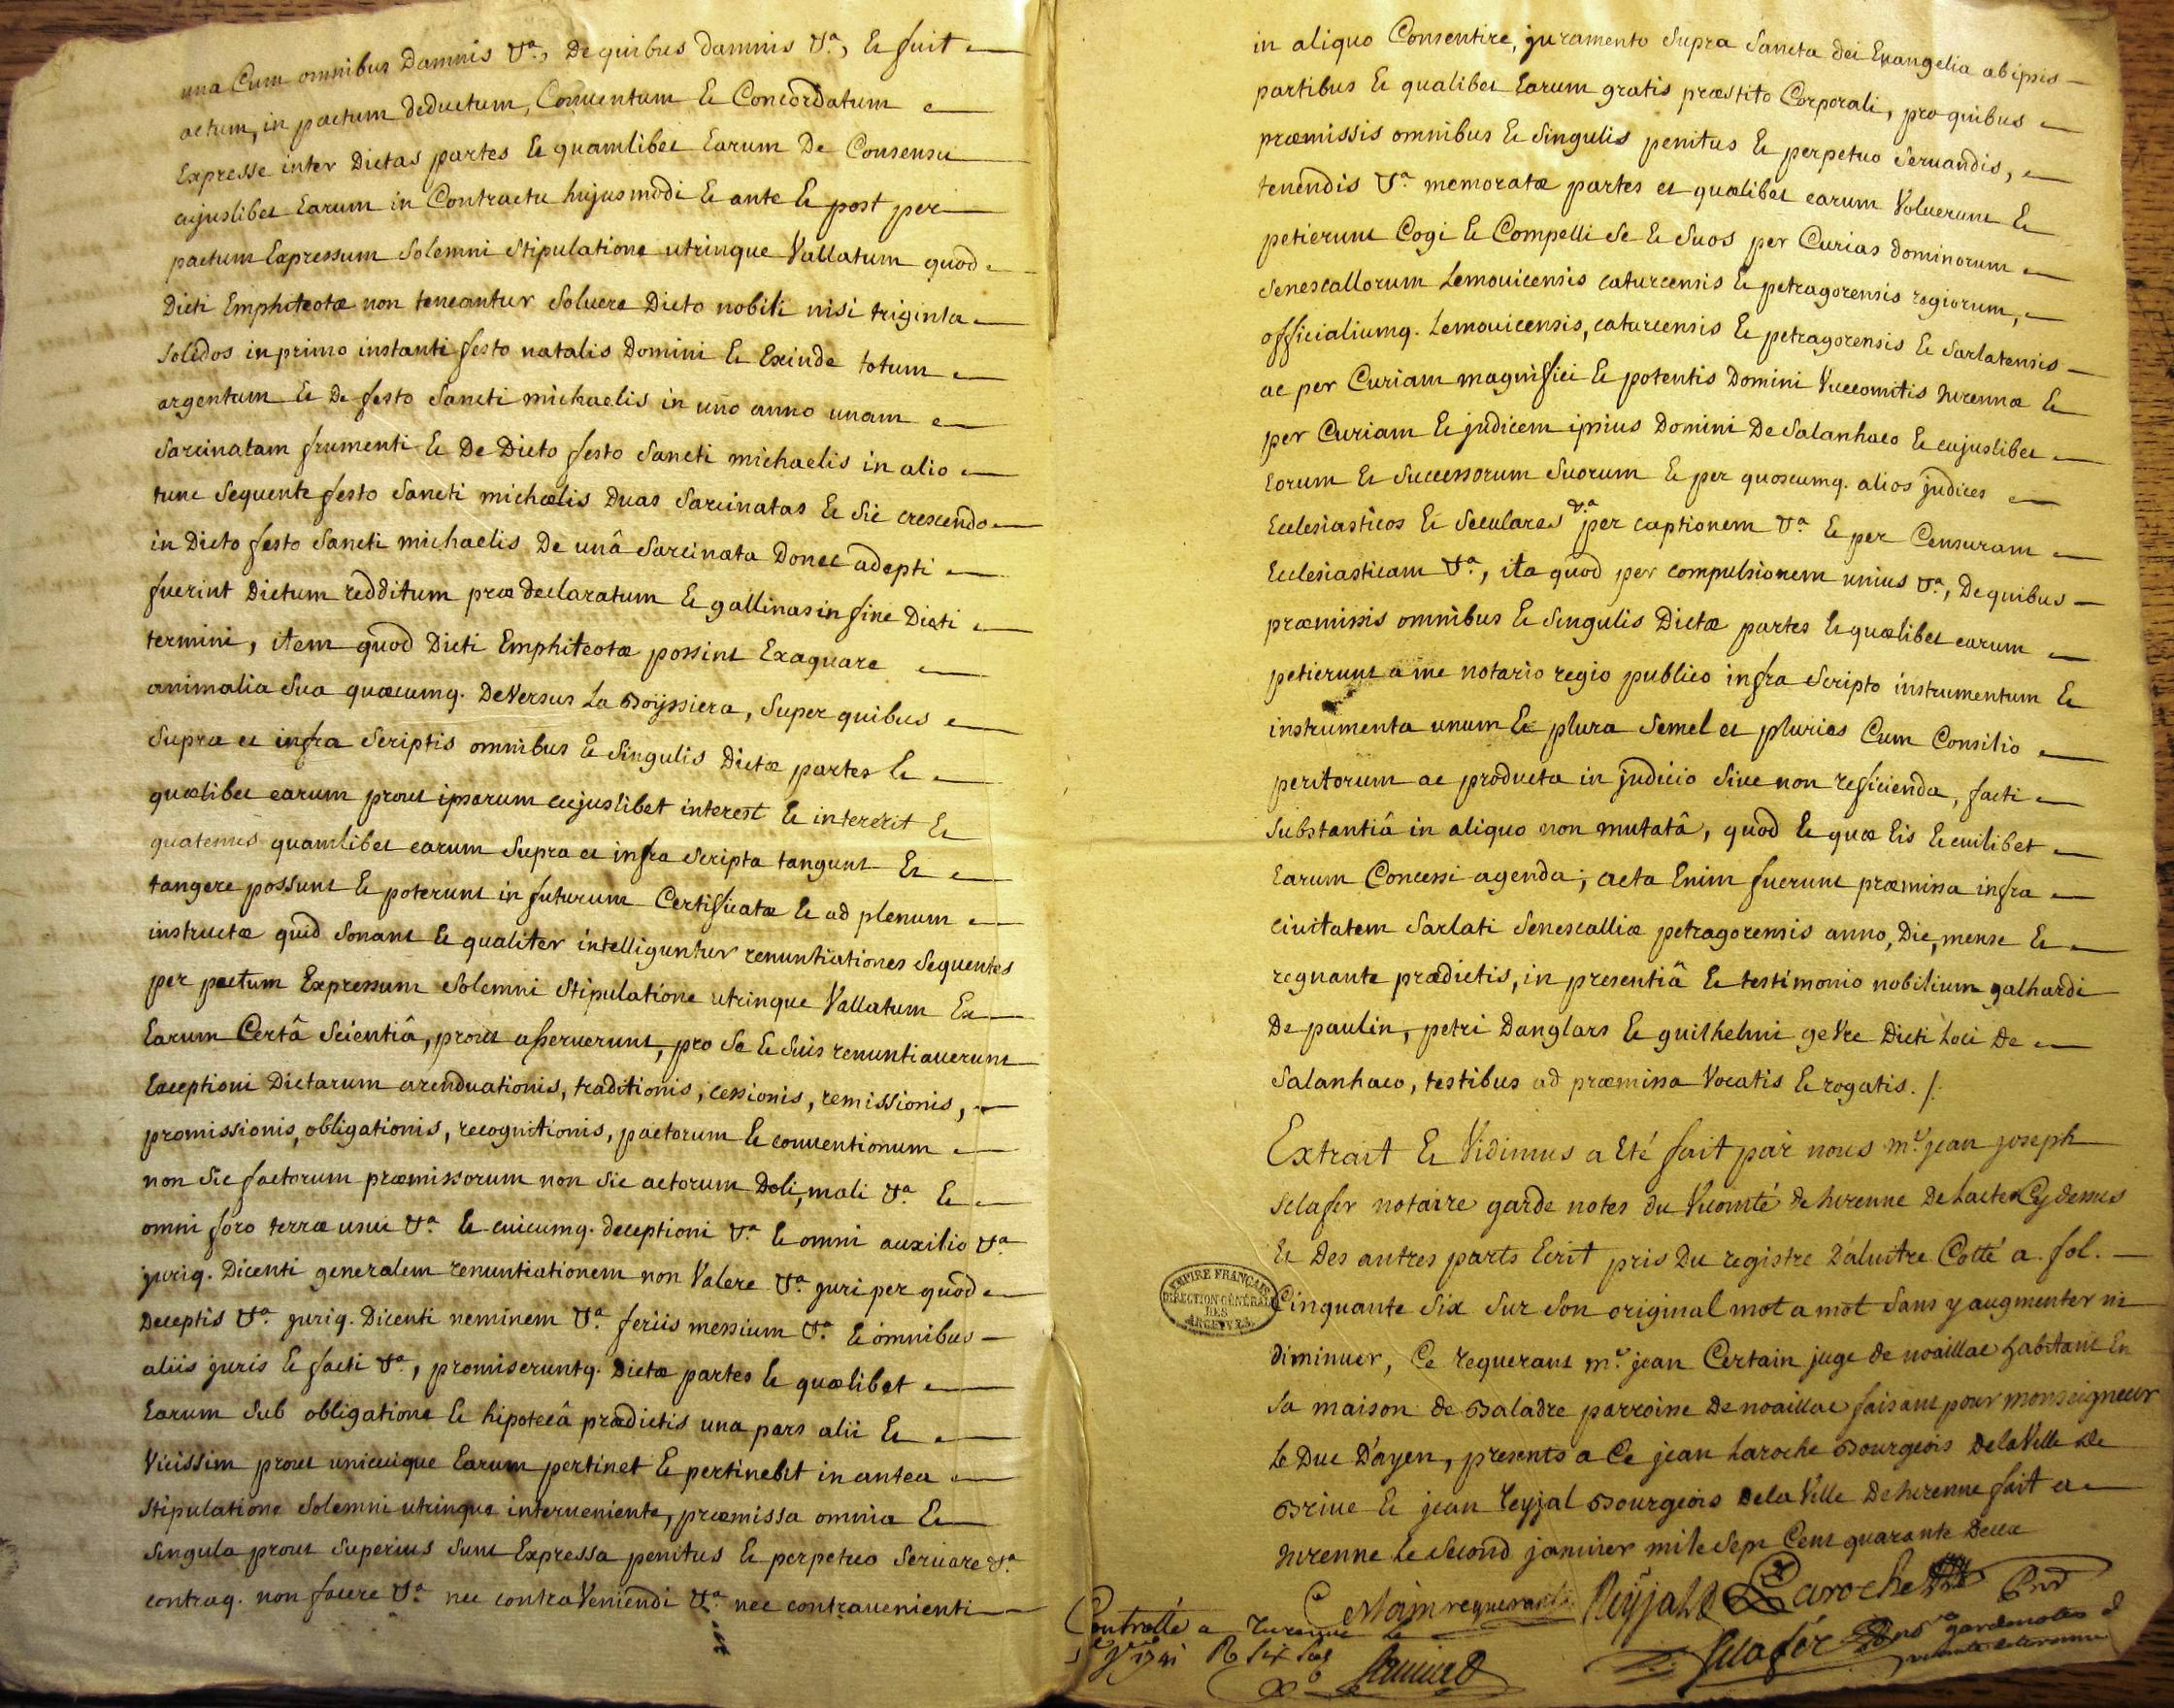 una Cum omnibus Damnis &.a, De quibus damnis &.a, Et fuit
actum, in pactum deductum, Conventum Et Concordatum
Expresse inter Dictas partes Et quamlibet Earum De Consensu
cujuslibet Earum in Contractu hujusmodi Et ante Et post per
pactum Expressum Solemni Stipulatione utrinque Vallatum quod
Dicti Emphiteotæ non teneantur Soluere Dicto nobili nisi triginta
Solidos in primo instanti festo natalis Domini Et Exinde totum
argentum Et De festo Sancti michaelis in uno anno unam
Sarcinatam frumenti Et De Dicto festo Sancti michaelis in alio
tunc Sequente festo Sancti michælis Duas Sarcinatas Et Sic crescendo
in Dicto festo Sancti michaelis De unâ Sarcinata Donec adepti
fuerint Dictum redditum præ declaratum Et gallinas in fine Dicti
termini, item quod Dicti Emphiteotæ possint Exaquare
animalia Sua quæcumq. DeVersus La Boÿssiera, Super quibus
Supra et infra Scriptis omnibus Et Singulis Dictæ partes Et
quælibet earum prout ipsarum cujuslibet interest Et intererit Et
quatenus quamlibet earum Supra et infra Scripta tangunt Et
tangere possunt Et poterunt in futurum Certificatæ Et ad plenum
instructæ quid Sonant Et qualiter intelliguntur renuntiationes Sequentes
per pactum Expressum Solemni Stipulatione utrinque Vallatum Ex
Earum Certâ Scientiâ, prout asseruerunt, pro Se Et Suis renuntiauerunt
Exceptioni Dictarum arenduationis, traditionis, cessionis, remissionis,
promissionis, obligationis, recognitionis, pactorum Et conuentionum
non Sic factorum præmissorum non Sic actorum Doli, mali &.a Et
omni foro terræ usui &.a Et cuicumq. deceptioni &.a Et omni auxilio &.a
juriq. Dicenti generalem renuntiationem non Valere &.a juri per quod
Deceptis &.a juriq. Dicenti neminem &.a feriis messium &.a Et omnibus
aliis juris Et facti &.a, promiseruntq. Dictæ partes Et quælibet
Earum Sub obligatione Et hipotecâ prædictis una pars alii Et
Vicissim prout unicuique Earum pertinet Et pertinebit in antea
Stipulatione Solemni utrinque interueniente, præmissa omnia Et
Singula prout Superius Sunt Expressa penitus Et perpetuo Seruare &.a
contraq. non facere &.a nec contraVeniendi &.a nec contrauenienti
in aliquo Consentire, juramento Supra Sancta dei Euangelia ab ipsis
partibus Et qualibet Earum gratis præstito Corporali, pro quibus
præmissis omnibus Et Singulis penitus Et perpetuo Seruandis,
tenendis &.a memoratæ partes et quælibet earum Voluerunt Et
petierunt Cogi Et Compelli Se Et Suos per Curias dominorum
Senescallorum Lemouicensis caturcensis Et petragorensis regiorum,
officialiumq. Lemouicensis, caturcensis Et petragorensis Et Sarlatensis
ac per Curiam magnifici Et potentis Domini Vicecomitis turennæ Et
per Curiam Et judicem ipsius Domini De Salanhaco Et cujuslibet
Eorum Et Successorum Suorum Et per quoscumq. alios judices
Ecclesiasticos Et Seculares &.a per captionem &.a Et per Censuram
Ecclesiasticam &.a, ita quod per compulsionem unius &.a, De quibus
præmissis omnibus Et Singulis Dictæ partes Et quælibet earum
petierunt a me notario regio publico infra Scripto instrumentum Et
instrumenta unum Et plura Semel et pluries Cum Consilio
peritorum ac producta in judicio Siue non reficienda, facti
Substantiâ in aliquo non mutatâ, quod Et quæ Eis Et cuilibet
Earum Concessi agenda; acta Enim fuerunt præmissa infra
ciuitatem Sarlati Senescalliæ petragorensis anno, Die, mense Et
regnante prædictis, in presentiâ Et testimonio nobilium galhardi
De paulin, petri Danglars Et guilhelmi geVre Dicti Loci De
Salanhaco, testibus ad præmissa Vocatis Et rogatis. /.
Extrait Et Vidimus a Eté fait par nous m.e jean joseph
Sclafer notaire garde notes du Vicomté de turenne De Lacte Cy dessus
Et Des autres parts Ecrit pris Du registre Daluitre Cotté a fol.
Cinquante Six Sur Son original mot a mot Sans y augmenter ni
diminuer, Ce requerant m.e jean Certain juge de noaillac habitant En
Sa maison de Baladre parroisse De noaillac faisant pour monseigneur
Le Duc D'ayen, presents a Ce jean Laroche Bourgeois De la Ville De
Briue Et jean Reyjal Bourgeois De la Ville De turenne fait a
turenne Le Second januier mile Sept Cent quarante Deux
Certain requerant Reÿjal Laroche
Sclafer
Controllé a Turenne le
R Six Sols
EMPIRE FRANÇAIS
DIRECTION GÉNÉRALE
DES
ARCHIVES.